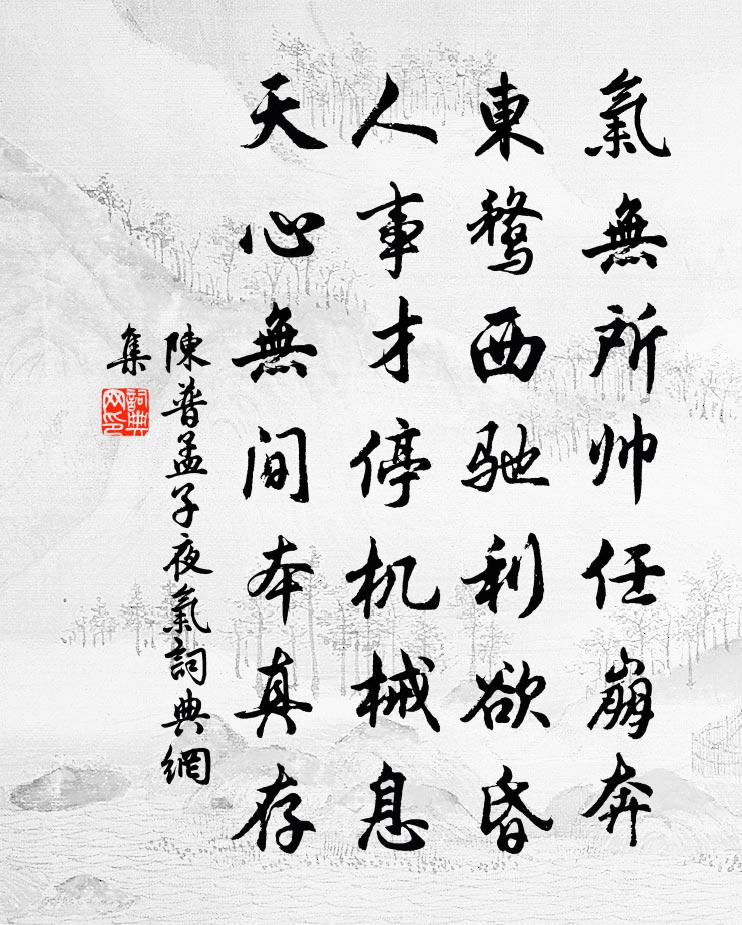 氣無所帅任崩奔
東鶩西驰利欲昏
人事才停机械息
天心無间本真存
陳普孟子夜氣詞典網
集
詞典
网印